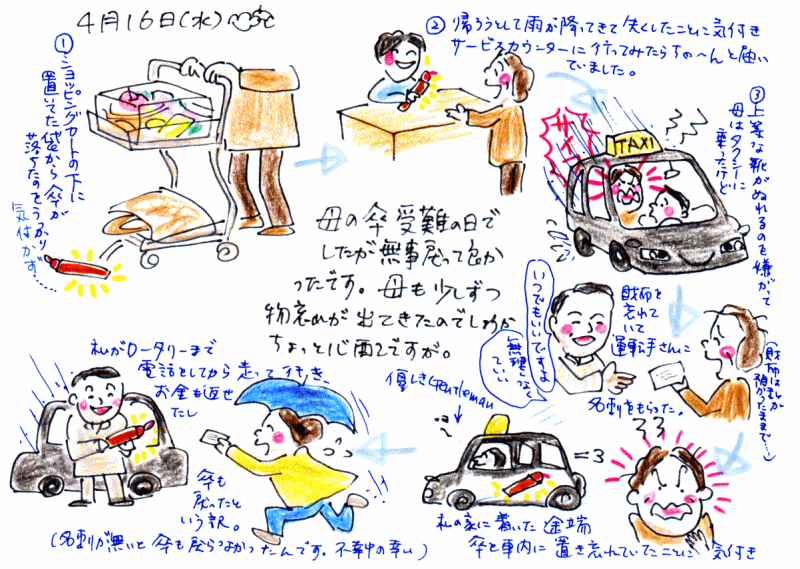 4月16日(水)
① ショッピングカートの下に
置いてた袋から傘が
落ちたのをうっかり
気付かず…
② 帰ろうとして雨が降ってきて失くしたことに気付き
サービスカウンターに行ってみたらちゃ〜んと届い
ていました。
③ 上等な靴がぬれるのを嫌がって
母はタクシーに
乗ったけど
TAXI
母の傘受難の日で
したが無事戻って良か
ったです。母も少しずつ
物忘れが出てきたのでしょうか
ちょっと心配ですが。
財布を
忘れて
いて
運転手さんに
名刺をもらった。
(財布は私が
預かったまま…)
いつでもいいですよ
無理しなく
ていい
優しきGentleman
=3
私の家に着いた途端
傘を車内に置き忘れていたことに気付き
私がロータリーまで
電話をしてから走って行き、
お金も返せ
たし
傘も
戻ったと
いう訳。
(名刺が無いと傘も戻らなかったんです。不幸中の幸い)